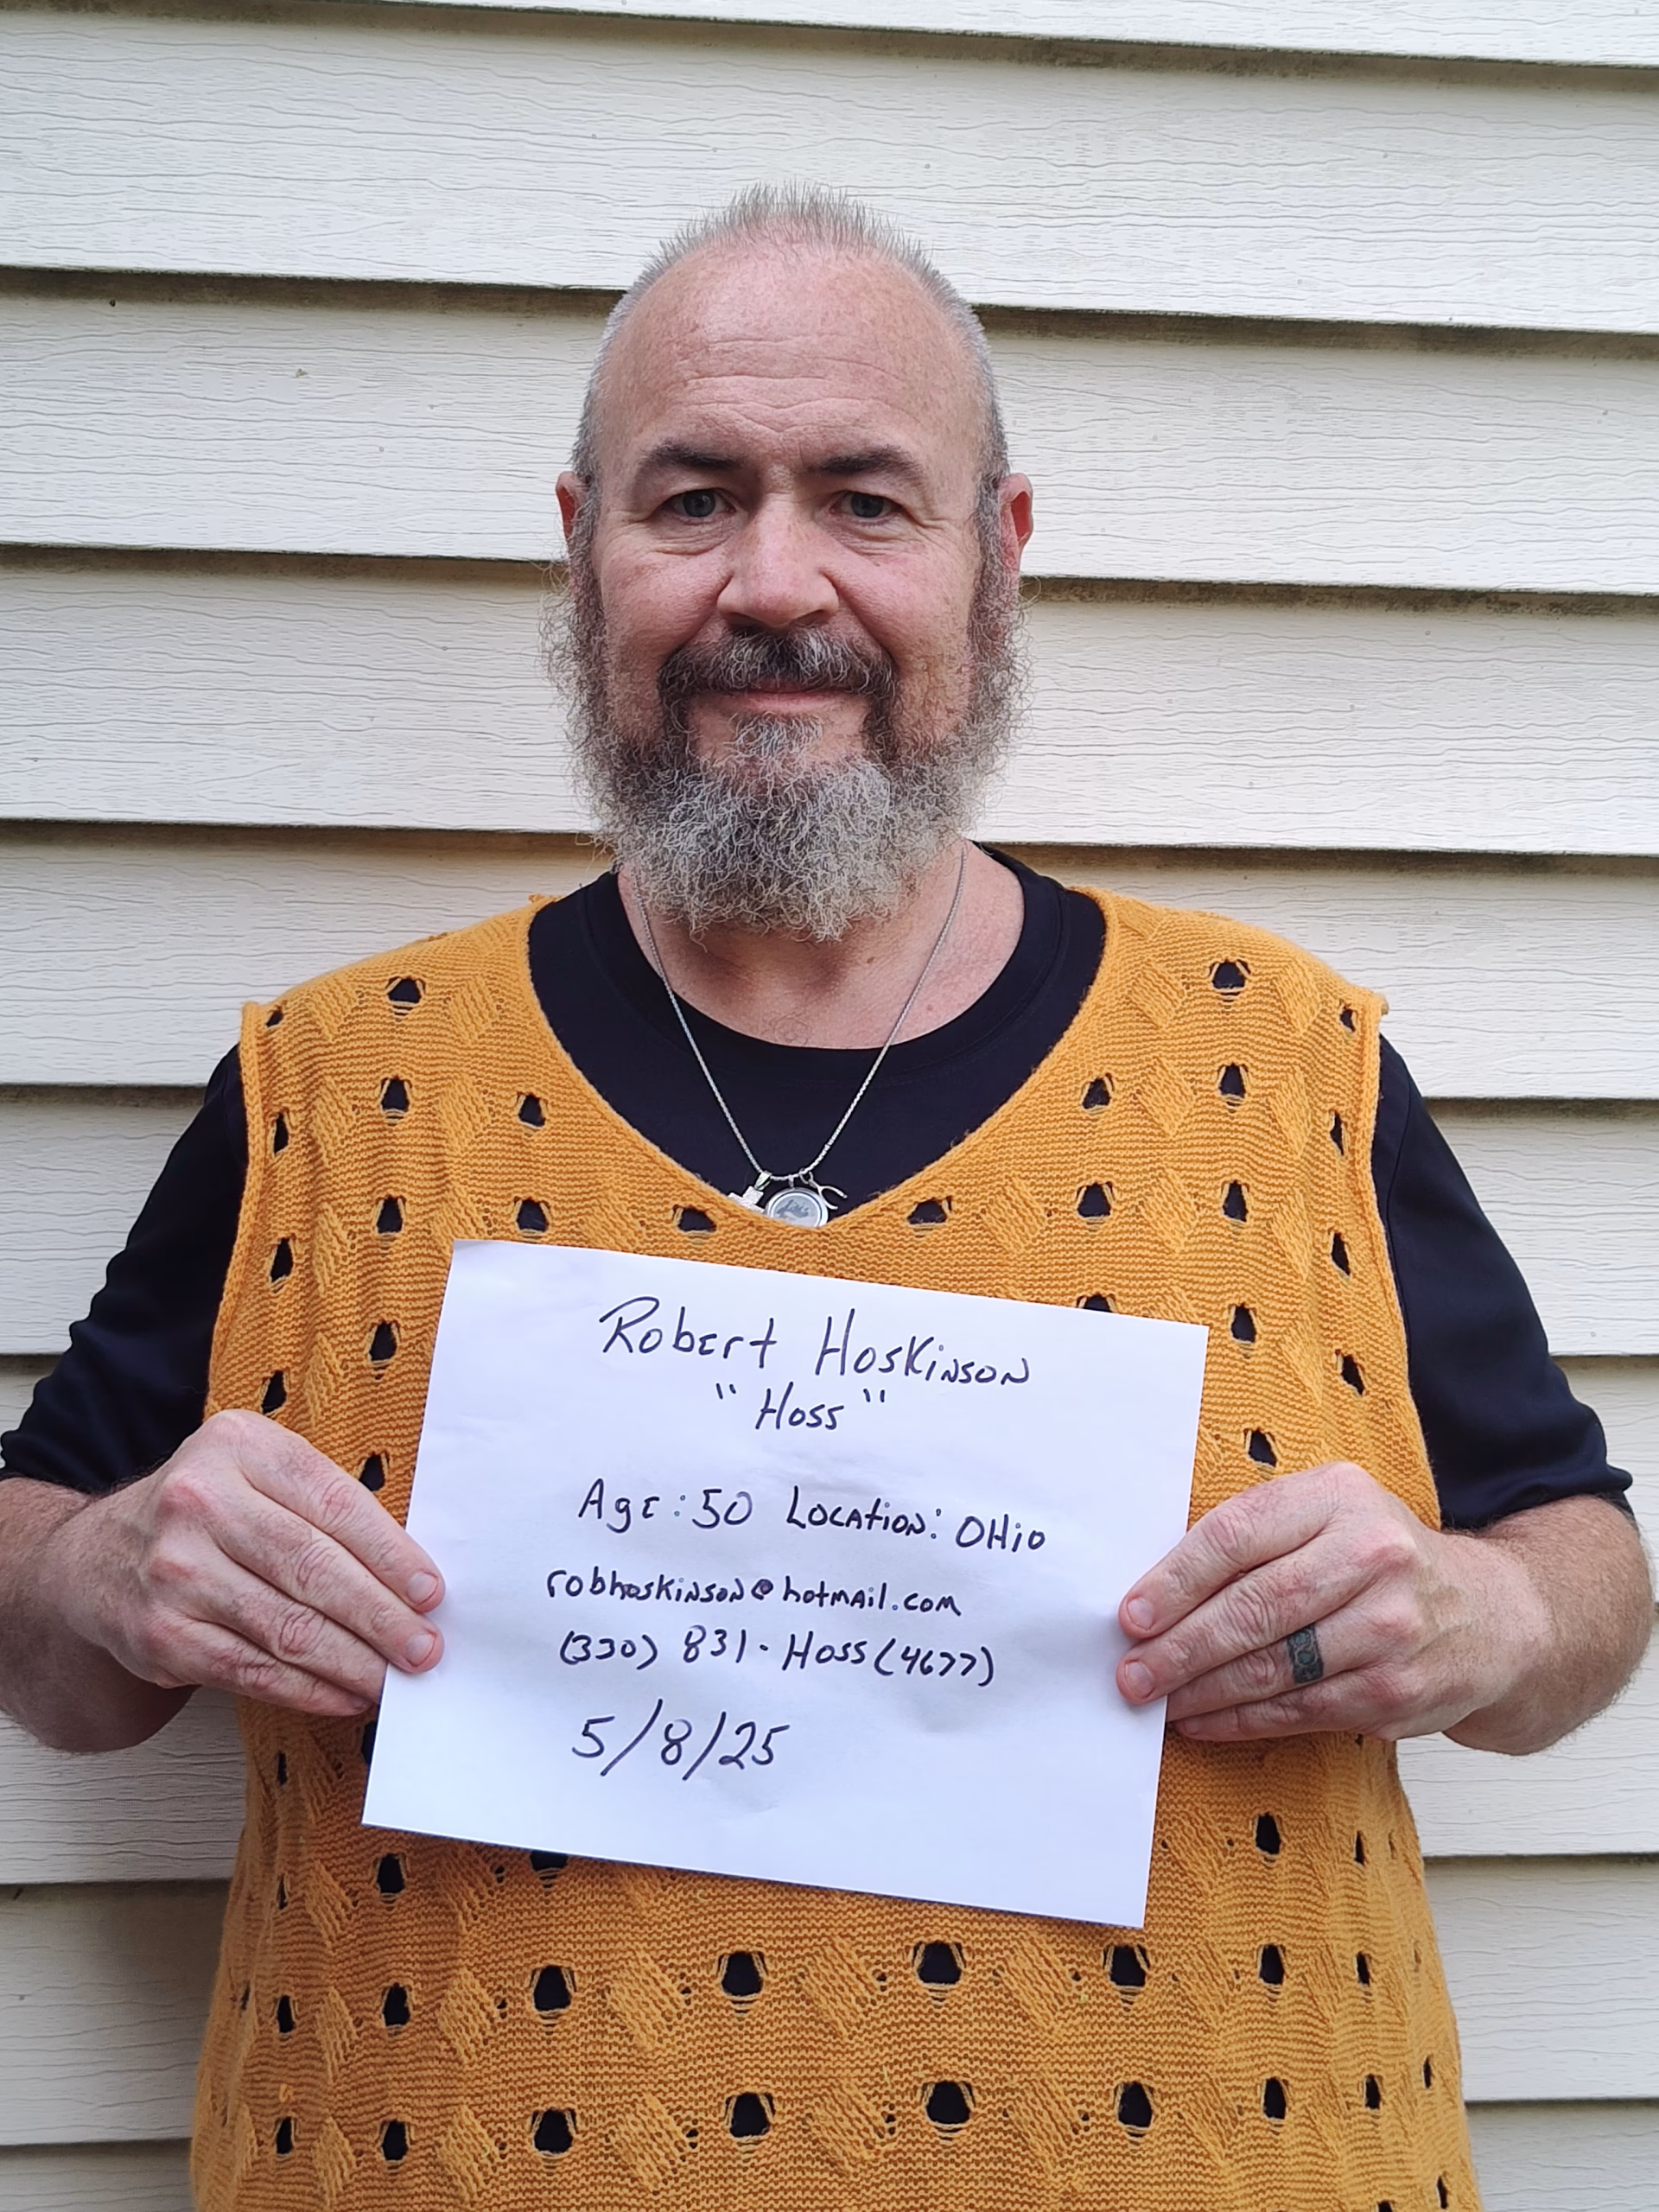 Robert Hoskinson
"Hoss"
Age: 50 Location: OHio
robhoskinson@hotmail.com
(330) 831-Hoss(4677)
5/8/25